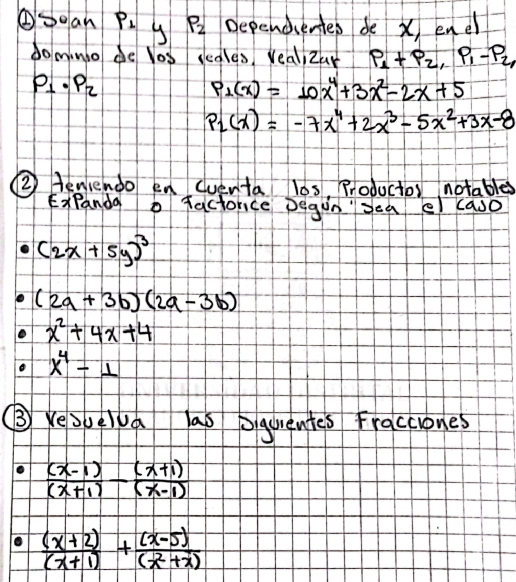 ① Sean P₁ y P₂ Dependientes de x, en el
dominio de los reales, realizar P₁ + P₂, P₁ - P₂,
P₁ · P₂ P₁(x) = 10x⁴ + 3x² - 2x + 5
P₂(x) = -7x⁴ + 2x³ - 5x² + 3x - 8
② teniendo en cuenta los Productos notables
Expanda o factorice Según sea el caso
• (2x + 5y)³
• (2a + 3b)(2a - 3b)
• x² + 4x + 4
• x⁴ - 1
③ resuelva las siguientes Fracciones
• (x-1)/(x+1) - (x+1)/(x-1)
• (x+2)/(x+1) + (x-5)/(x²+x)